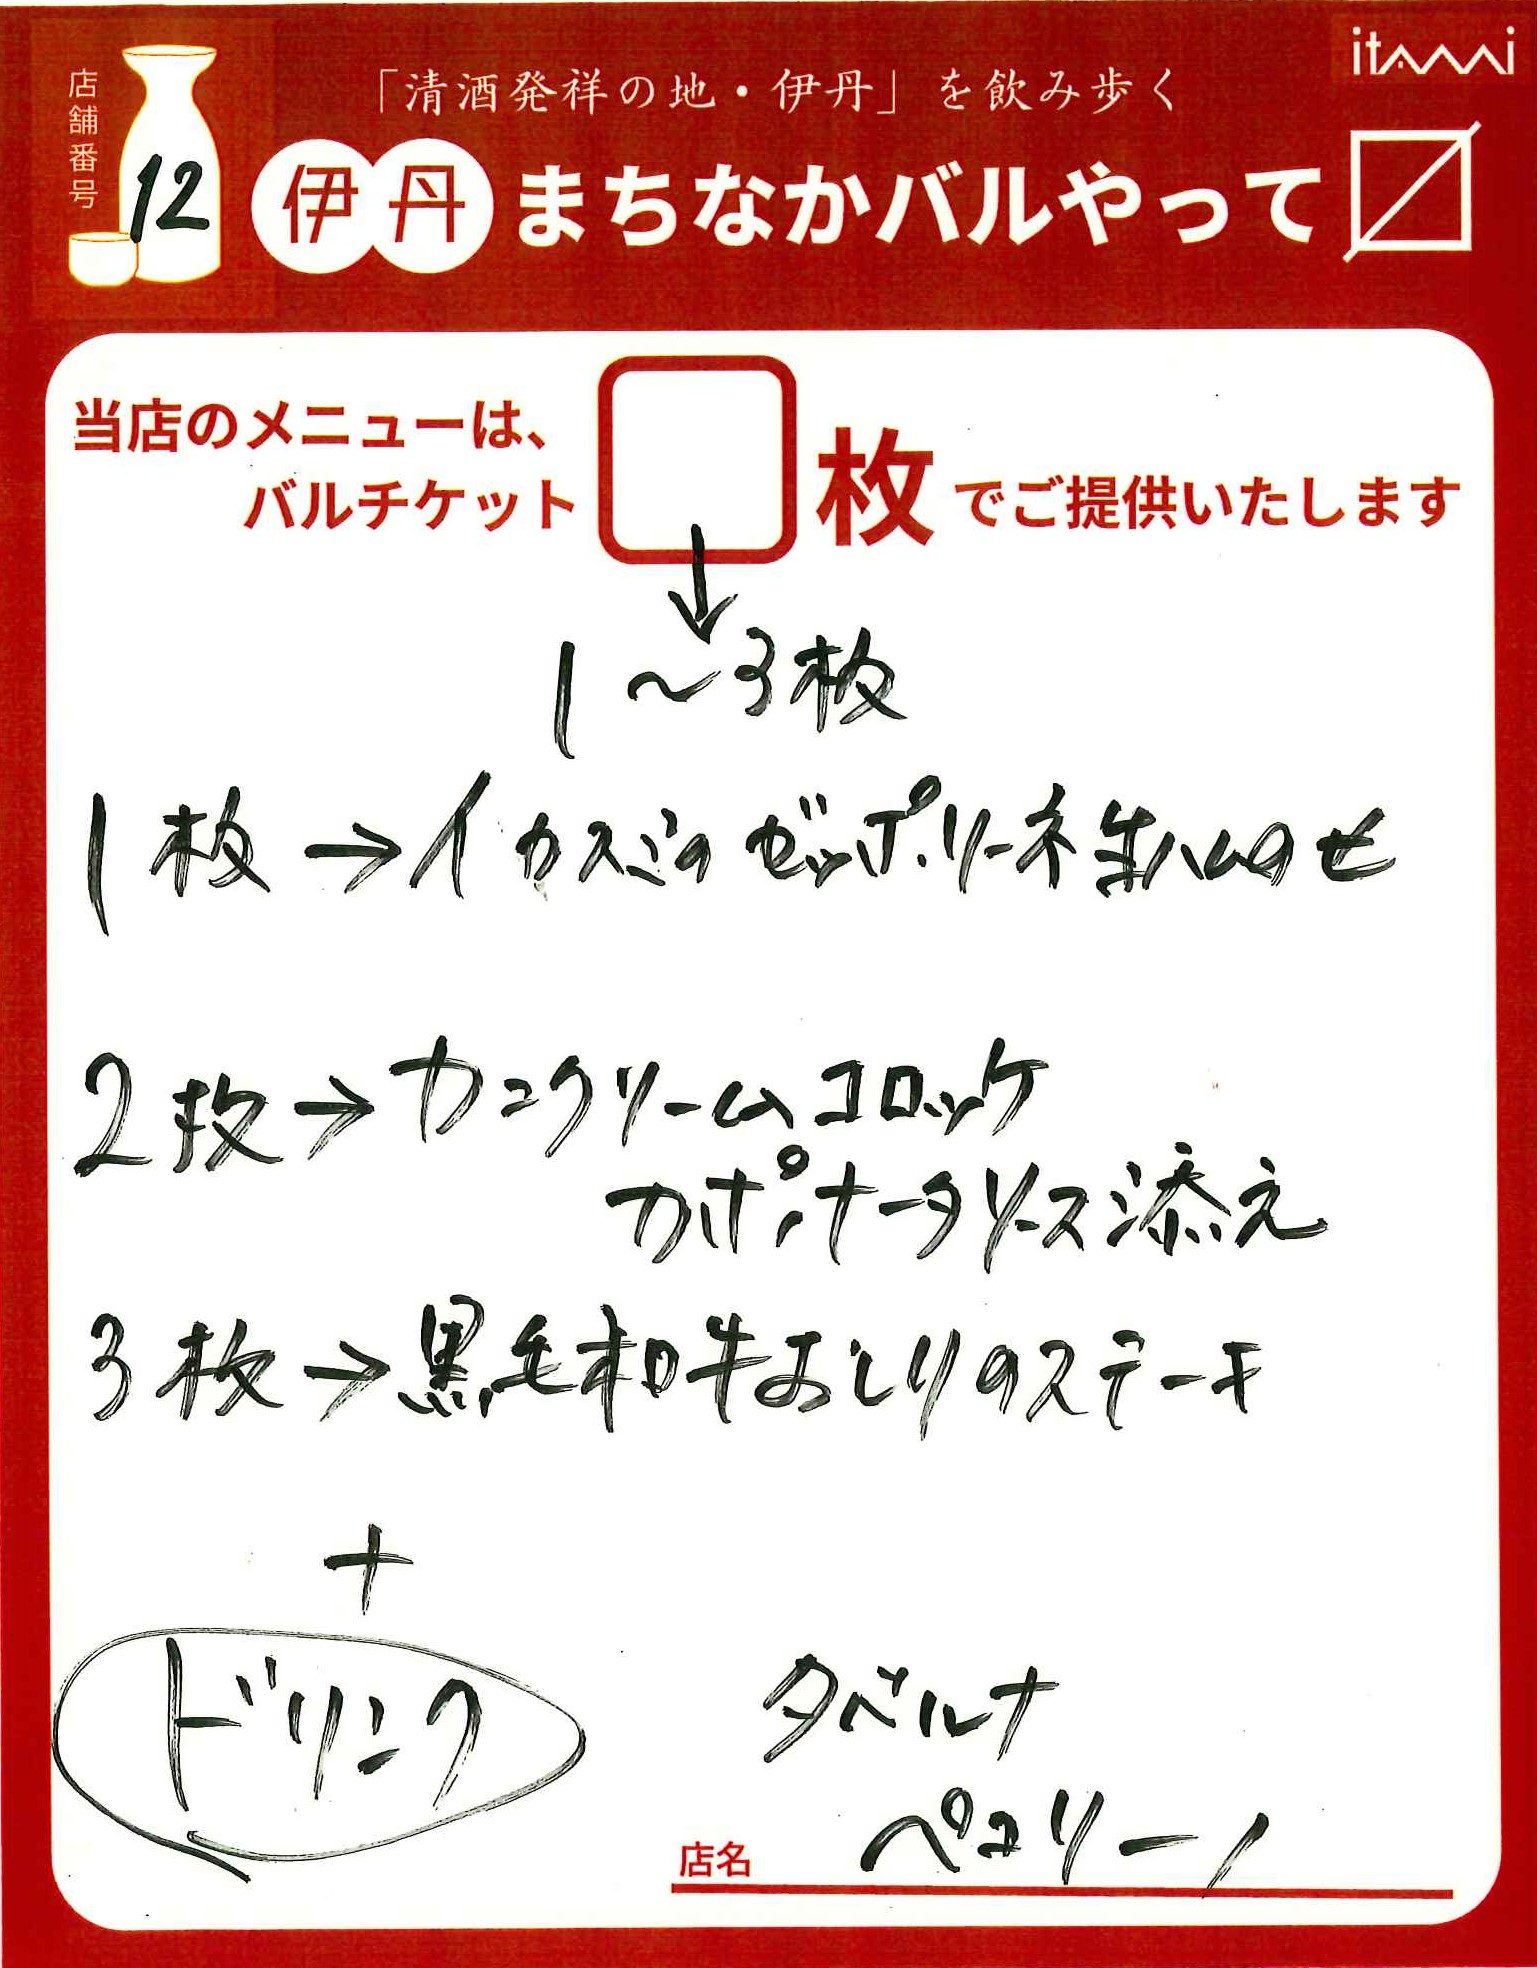 itami
店舗番号
12
「清酒発祥の地・伊丹」を飲み歩く
伊丹まちなかバルやって〼
当店のメニューは、
バルチケット 枚でご提供いたします
↓
1〜3枚
1枚→イカスミのゼッポリーネ生ハムのせ
2枚→カニクリームコロッケ
カポナータソース添え
3枚→黒毛和牛おしりのステーキ
+
ドリンク
タベルナ
ペコリーノ
店名